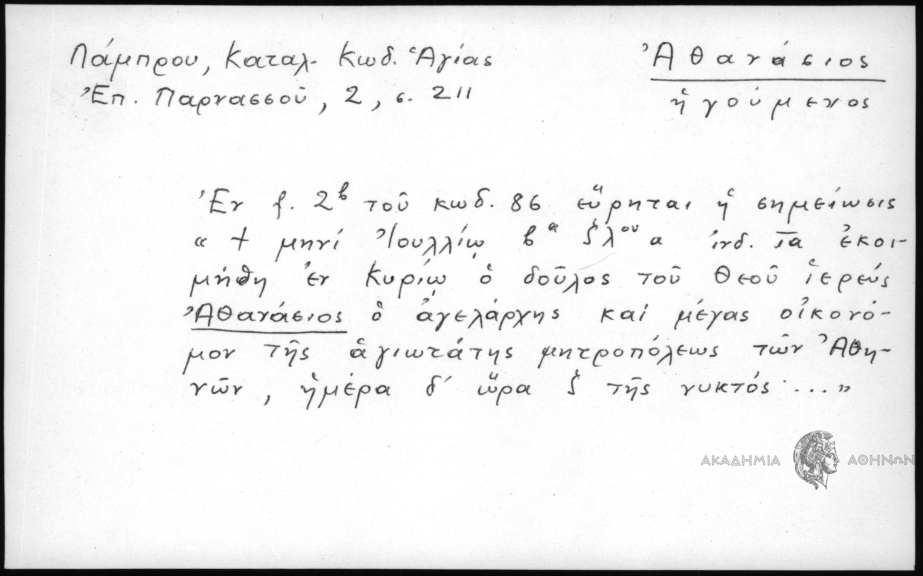 Λάμπρου, Καταλ. Κωδ. Ἁγίας
Ἐπ. Παρνασσοῦ, 2, σ. 211
Ἀθανάσιος
ἡγούμενος
Ἐν f. 2β τοῦ κωδ. 86 εὕρηται ἡ σημείωσις
« + μηνί Ἰουλλίῳ βα ἰνδ. ια ἐκοι-
μήθη ἐν Κυρίῳ ὁ δοῦλος τοῦ Θεοῦ ἱερεύς
Ἀθανάσιος ὁ ἀγελάρχης καί μέγας οἰκονό-
μον τῆς ἁγιωτάτης μητροπόλεως τῶν Ἀθη-
νῶν, ἡμέρα δ' ὥρα ζ τῆς νυκτός ....»
ΑΚΑΔΗΜΙΑ ΑΘΗΝΩΝ